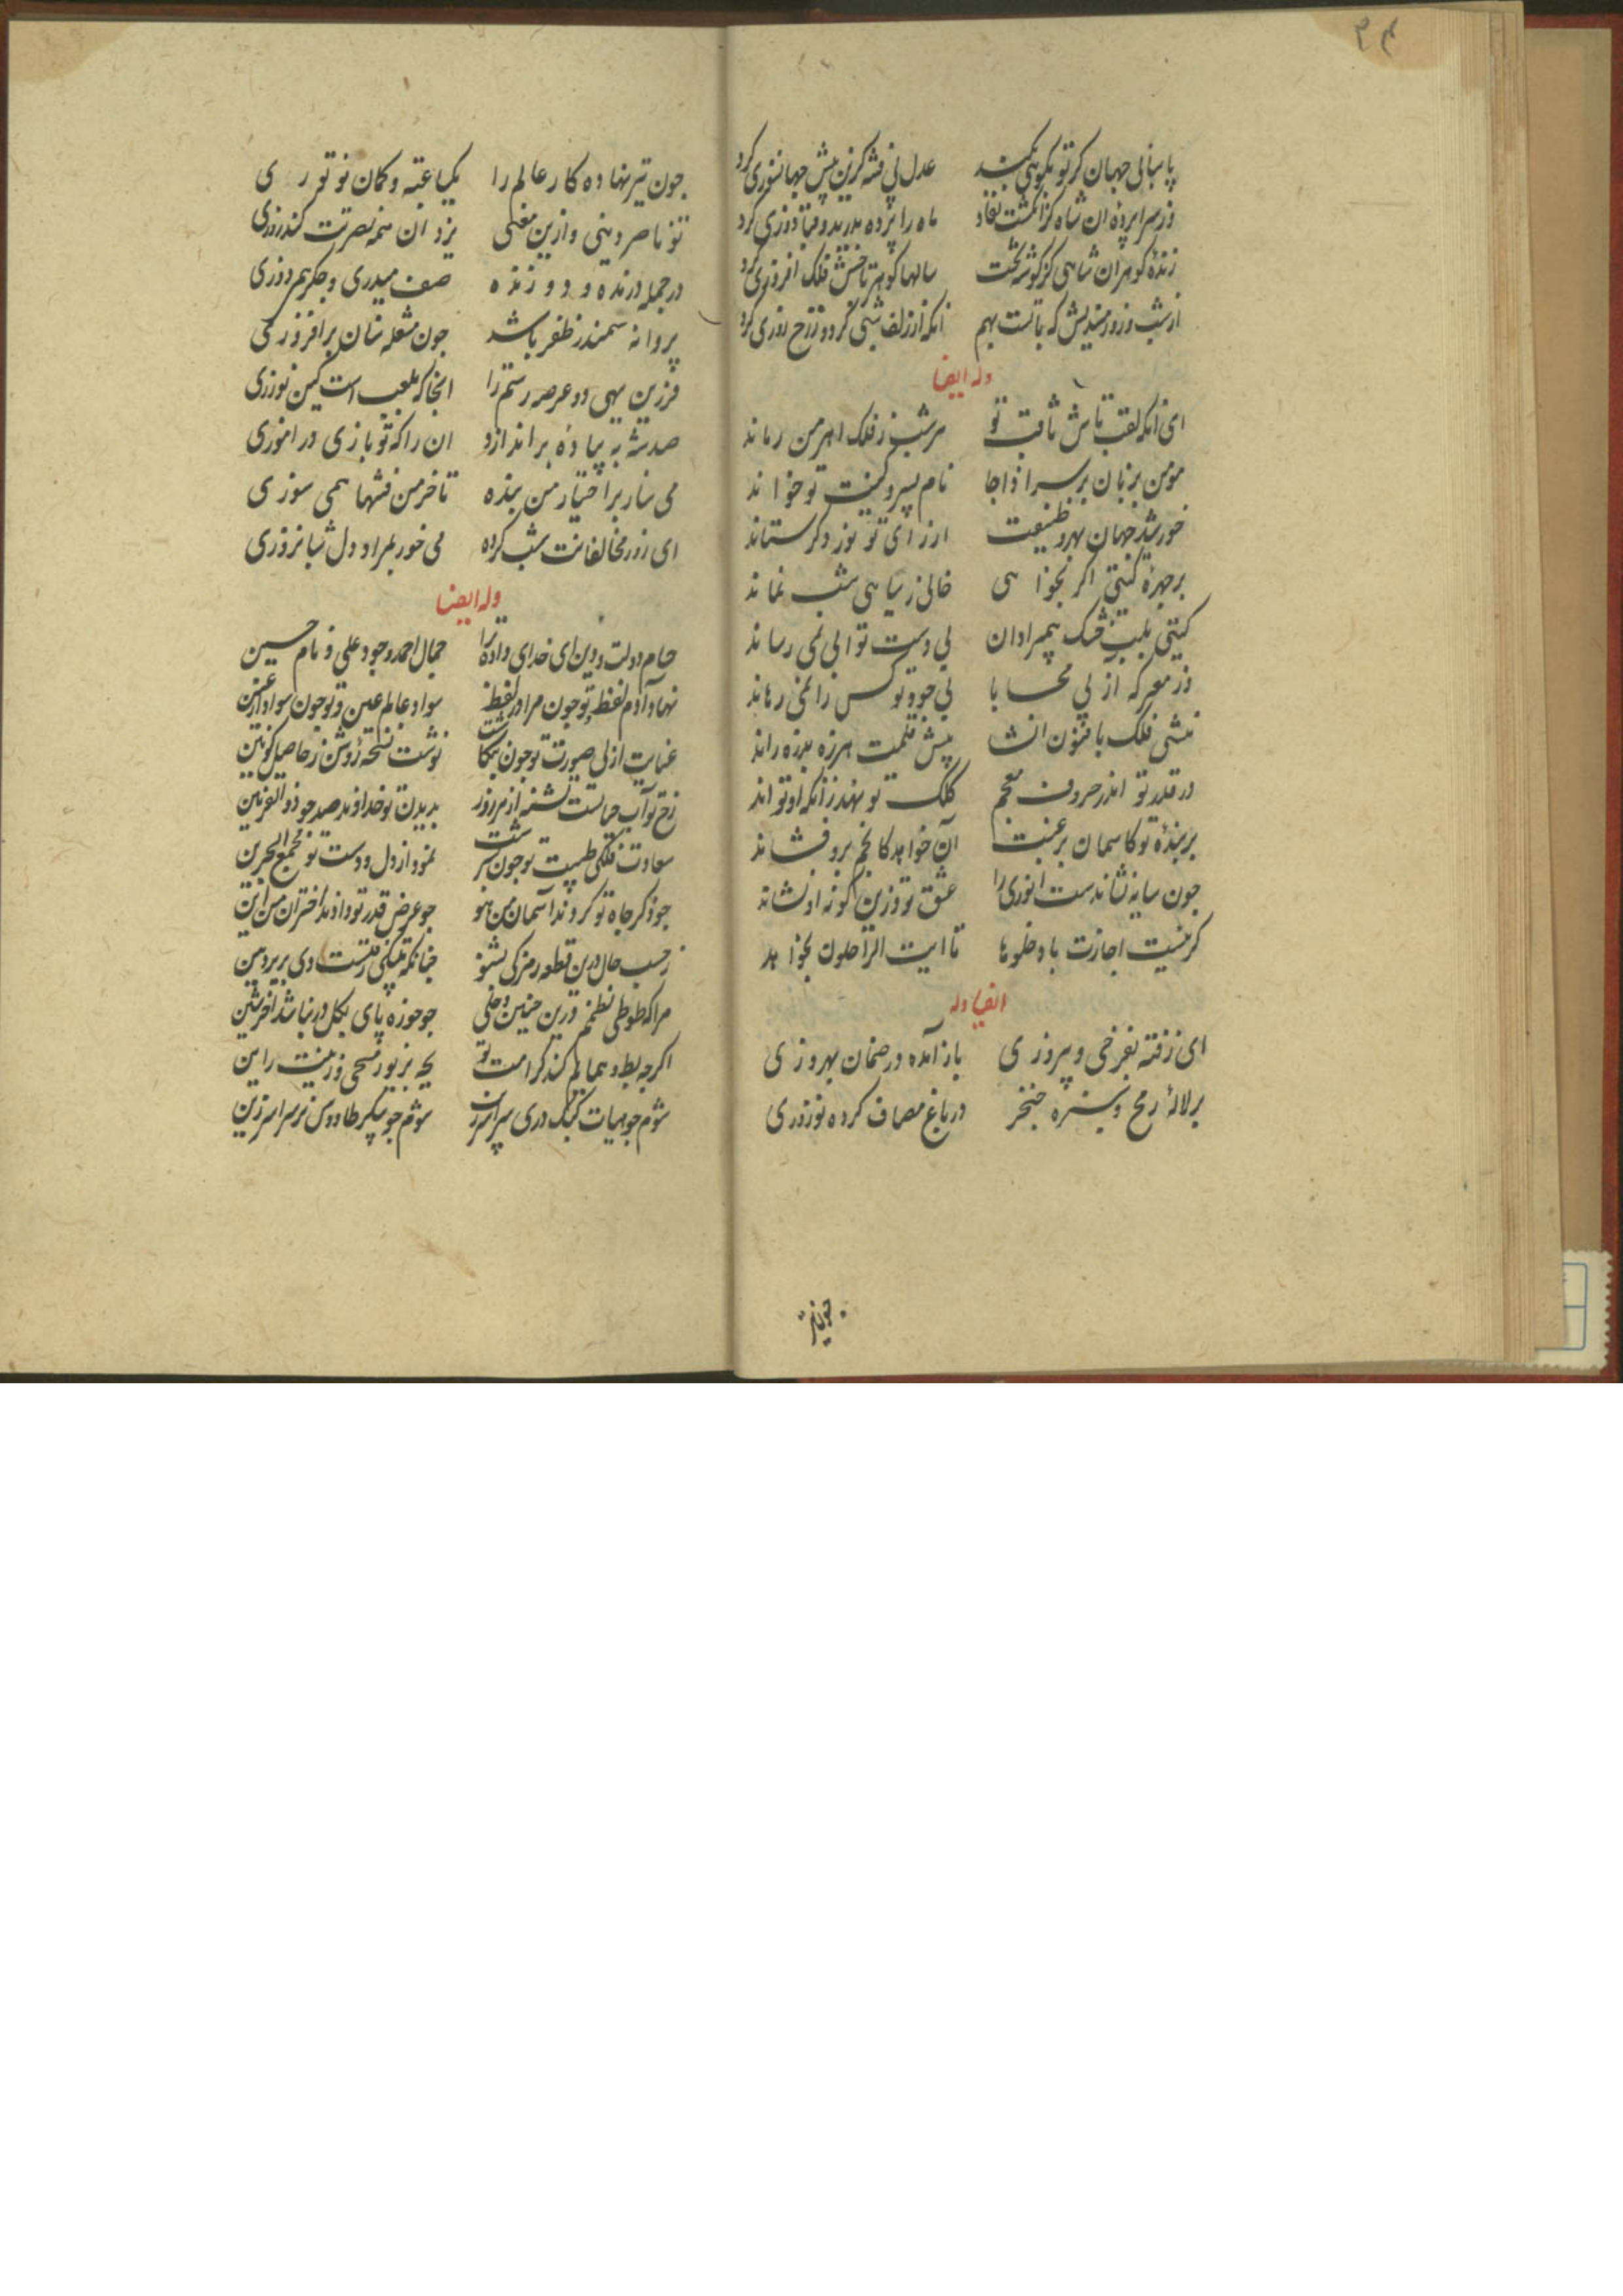 ۳۴
پاسبانی جهان گر تو بگویی بکند عدل بی فتنه کزین پیش جهانسوزی کرد
وز سراپرده ان شاه کز انگشت نفاذ ماه را پرده بدرید و قبا دوزی کرد
زنده گوهر ان شاهی کز گوشه تخت سالها گوهر تاجش فلک افروزی کرد
از شب و روز میندیش که با تست بهم انکه از زلف شبی کرد و ز رخ روزی کرد
وله ایضا
ای انکه لقب تاش ثاقب تو هر شب ز فلک اهرمن رماند
مومن بزبان بر سرا ذا جا نام پسر و کنیت تو خواند
خورشید جهان بهر وظیفت از رای تو نور و کر ستاند
بر چهره کیتی اگر بخواهی خالی ز سیاهی شب نماند
کیتی بلب خشک بی مرادان بی دست تو ابی نمی رساند
در معرکه از بی محابا بی جود تو کس را نمی رهاند
منشی فلک با فنون انشا پیش قلمت هرزه هرزه راند
در قدر تو اندر حروف معجم کلک تو نهند زانکه او تواند
بر بنده تو کاسمان برغبت آن خواهد کانجم برو فشاند
چون سایه نشاندست انوری را عشق تو وزین گونه او نشاند
گر نیست اجازت باوخلوها تا ایت الراحلون بخواند
ایضا وله
ای رفته بفرخی و پیروزی باز آمده در ضمان بهروزی
بر لاله رمح و سبزه خنجر در باغ مصاف کرده نوروزی
چون تیر
چون تیر نهاده کار عالم را یکباعته و کمان نو توزی
تو ناصر دینی و ازین معنی یزدان همه نصرتت کند روزی
در حمله درنده و دوزنده صف میدری و جگر همی دوزی
پروانه سمندر ظفر باشد چون مشعله سنان برافروزی
فرزین بنهی دو عرصه رستم را انجا که بلعب اسب کین توزی
صد شه بپیاده بر اندازد ان را که تو بازی در اموزی
می ساز بر اختیار من بنده تا خرمن فتنها همی سوزی
ای روز مخالفانت شب کرده می خور بمراد دل شبانروزی
وله ایضا
حسام دولت و دین ای خدای داده ترا جمال احمد و جود علی و نام حسین
نهاد آدم لفظ و تو چون مراد از لفظ سواد عالم عین و تو چون سواد از عین
عنایت ازلی صورت تو چون بنگاشت نوشت نسخه روشن ز حاصل کونین
رخ تو آب حیاتست تشنه از مر روز بدیدن تو خداوند صد چو ذو القرنین
سعادت فلکی طبیت تو چون بسرشت نمود از دل و دست تو مجمع البحرین
چو ذکر جاه تو کردند آسمان من هو چو عرض قدر تو دادند اختران من این
ز حسب حال درین قطعه رمزکی بشنو چنانکه متکی رفتست دی بریرومین
مرا که طوطی نطقم درین چنین وحلی چو جوزه پای بگل در نباشد اخر شین
اگرچه بط و همایم کند کرامت تو یکی بزیور مسحی و زینت راین
شوم چو هیات کبک دری سراسر شوم چو پیکر طاووس نر سراسر زین